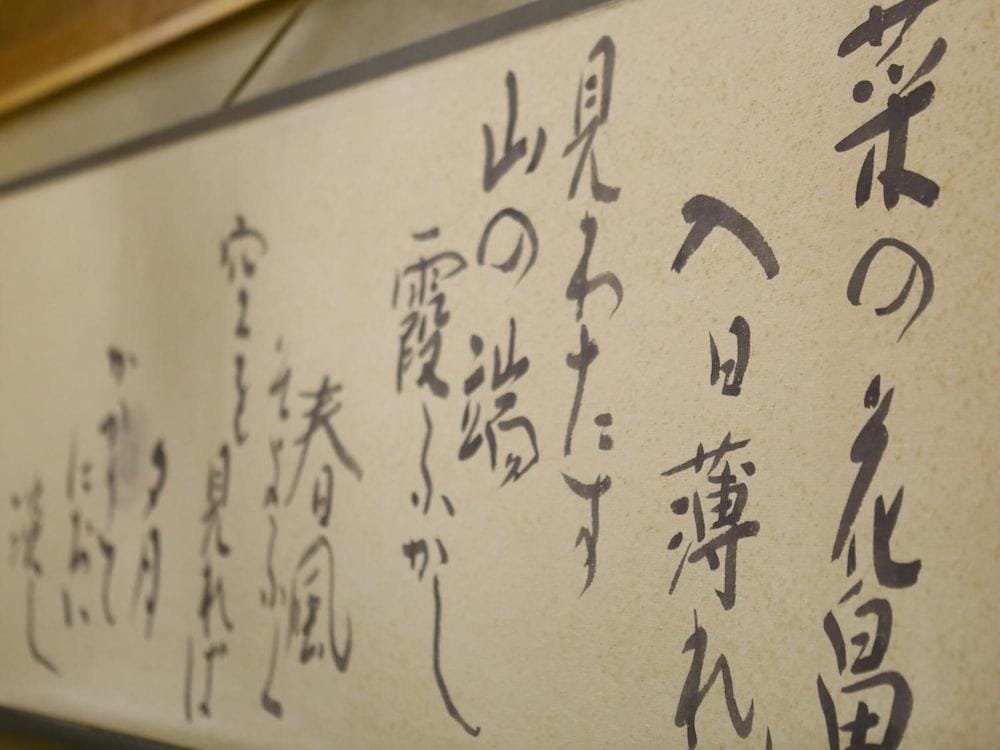 菜の花畠
入日薄れ
見わたす
山の端
霞ふかし
春風
そよふく
空を見れば
夕月
かかりて
淡し